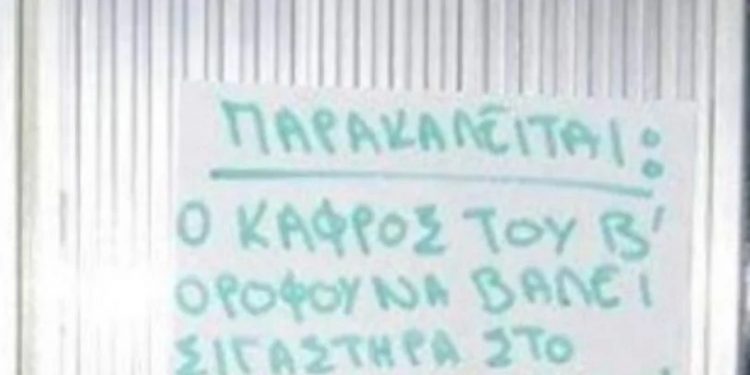 ΠΑΡΑΚΑΛΕΙΤΑΙ:
Ο ΚΑΦΡΟΣ ΤΟΥ Β'
ΟΡΟΦΟΥ ΝΑ ΒΑΛΕΙ
ΣΙΓΑΣΤΗΡΑ ΣΤΟ